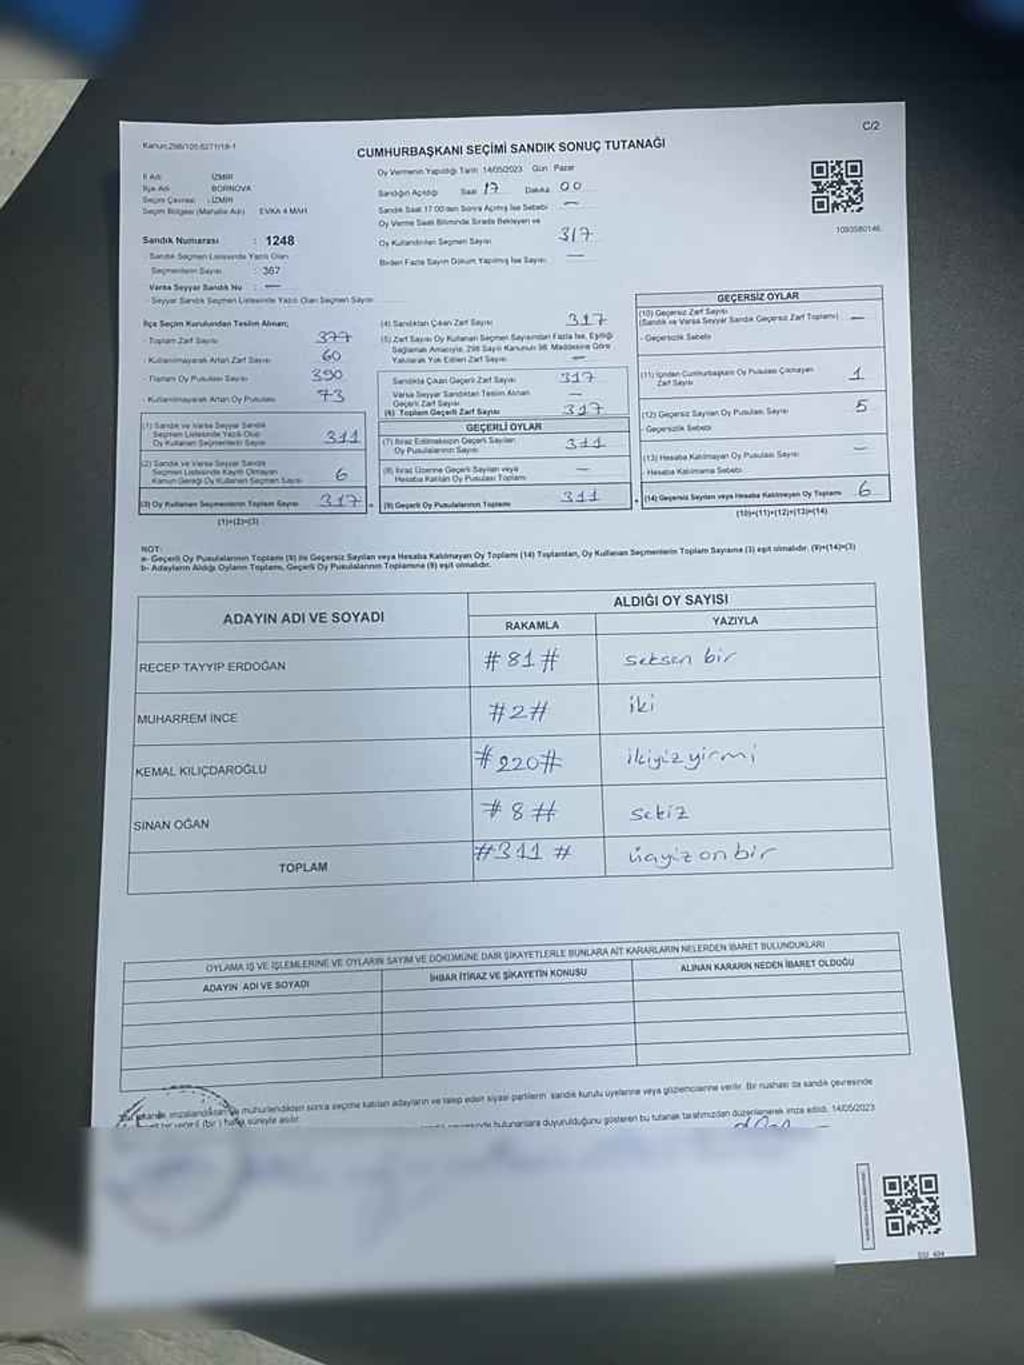 Kanun:298/105.6271/19-1
C/2
CUMHURBAŞKANI SEÇİMİ SANDIK SONUÇ TUTANAĞI
İl Adı : İZMİR
İlçe Adı : BORNOVA
Seçim Çevresi : İZMİR
Seçim Bölgesi (Mahalle Adı) EVKA 4 MAH
Sandık Numarası : 1248
Sandık Seçmen Listesinde Yazılı Olan
Seçmenlerin Sayısı : 367
Varsa Seyyar Sandık No : —
- Seyyar Sandık Seçmen Listesinde Yazılı Olan Seçmen Sayısı
Oy Vermenin Yapıldığı Tarih 14/05/2023 Gün Pazar
Sandığın Açıldığı Saat 17 Dakika 00
Sandık Saat 17:00'den Sonra Açılmış İse Sebebi —
Oy Verme Saat Bitiminde Sırada Bekleyen ve
Oy Kullandırılan Seçmen Sayısı 317
Birden Fazla Sayım Döküm Yapılmış İse Sayısı —
1093580146
İlçe Seçim Kurulundan Teslim Alınan;
- Toplam Zarf Sayısı 377
- Kullanılmayarak Artan Zarf Sayısı 60
- Toplam Oy Pusulası Sayısı 390
- Kullanılmayarak Artan Oy Pusulası 73
(1) Sandık ve Varsa Seyyar Sandık
Seçmen Listesinde Yazılı Olup
Oy Kullanan Seçmenlerin Sayısı 311
(2) Sandık ve Varsa Seyyar Sandık
Seçmen Listesinde Kayıtlı Olmayan
Kanun Gereği Oy Kullanan Seçmen Sayısı 6
(3) Oy Kullanan Seçmenlerin Toplam Sayısı 317
(1)+(2)=(3)
(4) Sandıktan Çıkan Zarf Sayısı 317
(5) Zarf Sayısı Oy Kullanan Seçmen Sayısından Fazla İse, Eşitliği
Sağlamak Amacıyla, 298 Sayılı Kanunun 98. Maddesine Göre
Yakılarak Yok Edilen Zarf Sayısı —
Sandıkta Çıkan Geçerli Zarf Sayısı 317
Varsa Seyyar Sandıktan Teslim Alınan
Geçerli Zarf Sayısı —
(6) Toplam Geçerli Zarf Sayısı 317
GEÇERLİ OYLAR
(7) İtiraz Edilmeksizin Geçerli Sayılan
Oy Pusulasının Sayısı 311
(8) İtiraz Üzerine Geçerli Sayılan veya
Hesaba Katılan Oy Pusulası Toplamı —
(9) Geçerli Oy Pusulalarının Toplamı 311
GEÇERSİZ OYLAR
(10) Geçersiz Zarf Sayısı
(Sandık ve Varsa Seyyar Sandık Geçersiz Zarf Toplamı) —
- Geçersizlik Sebebi
(11) İçinden Cumhurbaşkanı Oy Pusulası Çıkmayan
Zarf Sayısı 1
(12) Geçersiz Sayılan Oy Pusulası Sayısı 5
- Geçersizlik Sebebi
(13) Hesaba Katılmayan Oy Pusulası Sayısı —
- Hesaba Katılmama Sebebi
(14) Geçersiz Sayılan veya Hesaba Katılmayan Oy Toplamı 6
(10)+(11)+(12)+(13)=(14)
NOT:
a- Geçerli Oy Pusulalarının Toplamı (9) ile Geçersiz Sayılan veya Hesaba Katılmayan Oy Toplamı (14) Toplamları, Oy Kullanan Seçmenlerin Toplam Sayısına (3) eşit olmalıdır. (9)+(14)=(3)
b- Adayların Aldığı Oyların Toplamı, Geçerli Oy Pusulalarının Toplamına (9) eşit olmalıdır.
ADAYIN ADI VE SOYADI
ALDIĞI OY SAYISI
RAKAMLA YAZIYLA
RECEP TAYYİP ERDOĞAN #81# seksen bir
MUHARREM İNCE #2# iki
KEMAL KILIÇDAROĞLU #220# ikiyüzyirmi
SİNAN OĞAN #8# sekiz
TOPLAM #311# üçyüzonbir
OYLAMA İŞ VE İŞLEMLERİNE VE OYLARIN SAYIM VE DÖKÜMÜNE DAİR ŞİKAYETLERLE BUNLARA AİT KARARLARIN NELERDEN İBARET BULUNDUKLARI
ADAYIN ADI VE SOYADI İHBAR İTİRAZ VE ŞİKAYETİN KONUSU ALINAN KARARIN NEDEN İBARET OLDUĞU
tutanak, imzalandıktan ve mühürlendikten sonra seçime katılan adayların ve talep eden siyasi partilerin sandık kurulu üyelerine veya gözlemcilerine verilir. Bir nüshası da sandık çevresinde
(bir) hafta süreyle asılır.
bulunanlara duyurulduğunu gösteren bu tutanak tarafımızdan düzenlenerek imza edildi. 14/05/2023